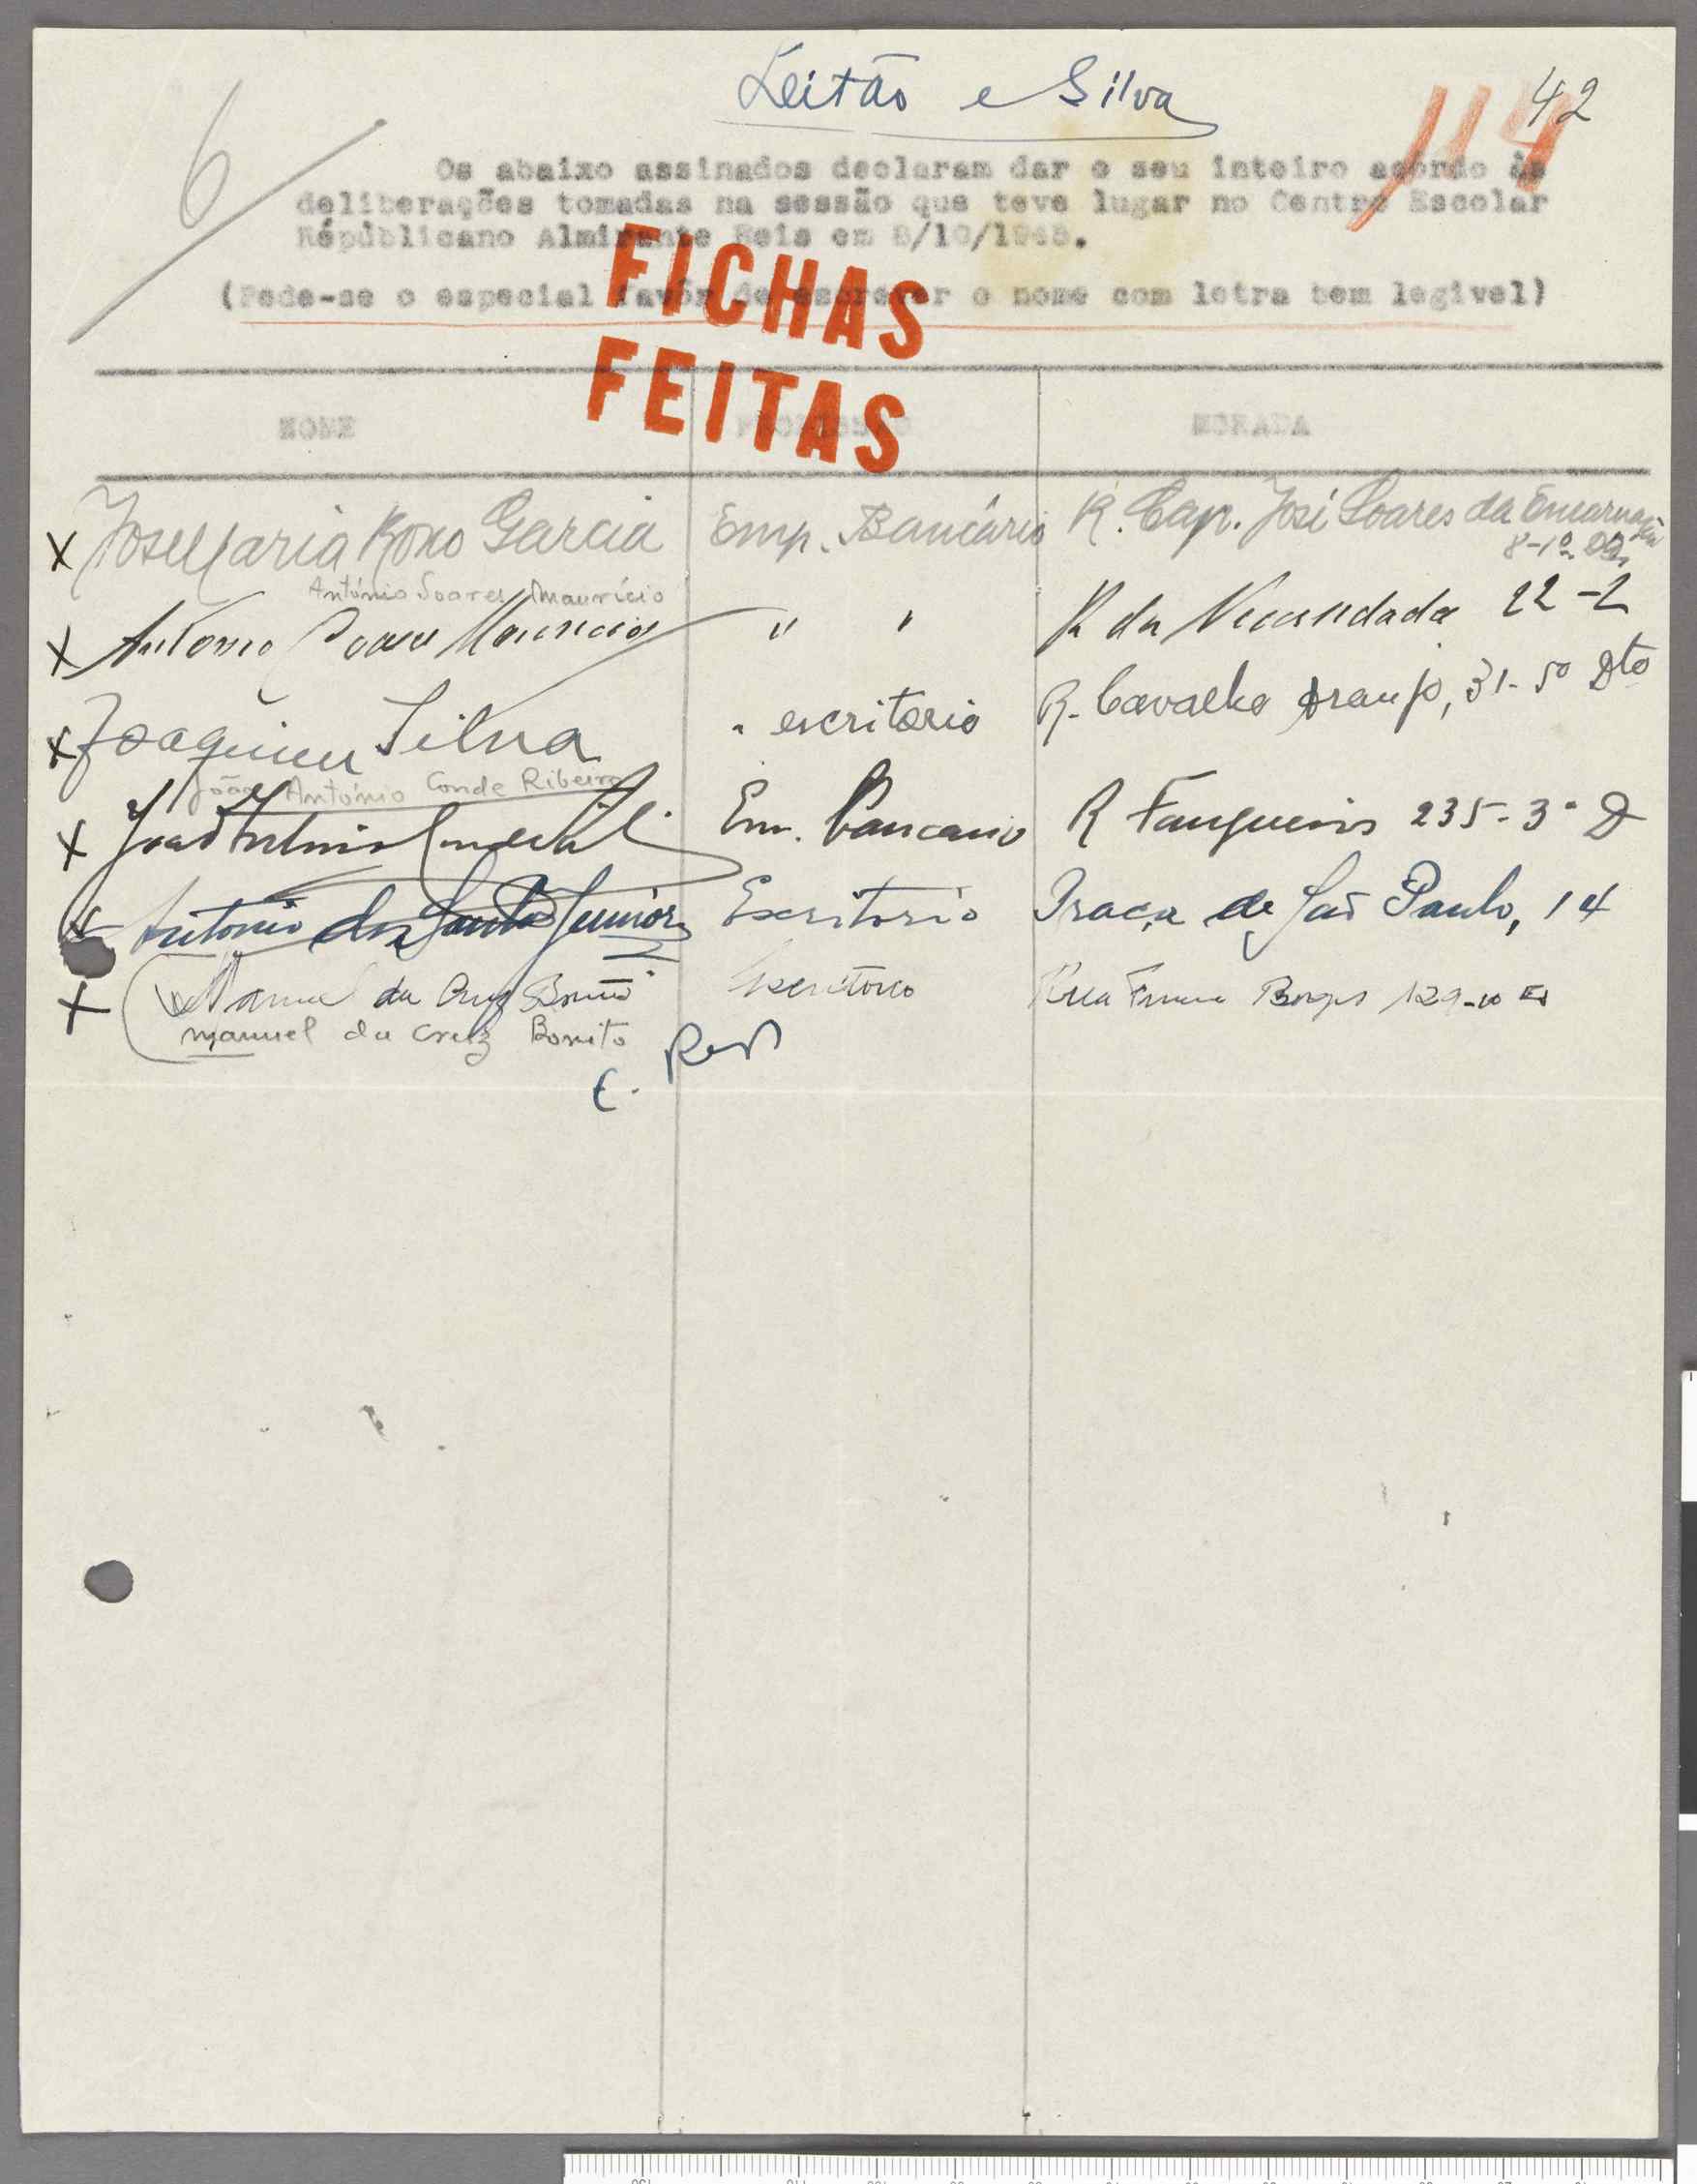 Leitão e Silva
42
114
6
Os abaixo assinados declaram dar o seu inteiro acordo às
deliberações tomadas na sessão que teve lugar no Centro Escolar
Républicano Almirante Reis em 8/10/1945.
(Pede-se o especial favôr de escrever o nome com letra bem legivel)
FICHAS
FEITAS
NOME PROFISSÃO MORADA
X José Maria Roxo Garcia Emp. Bancário R. Cap. José Soares da Encarnação
8-1º Dto
António Soares Maurício
X Antonio Soares Mauricio " " R da 22-2
X Joaquim Silva " escritorio R. Carvalho Araujo, 31-5º Dto
João António Conde Ribeiro
X João Antonio Conde Em. Bancario R Fanqueiros 235-3º D
Antonio dos Santos Junior Escritorio Praça de São Paulo, 14
X Manuel da Cruz Bonito Escritorio Rua Borges 129
Manuel da Cruz Bonito